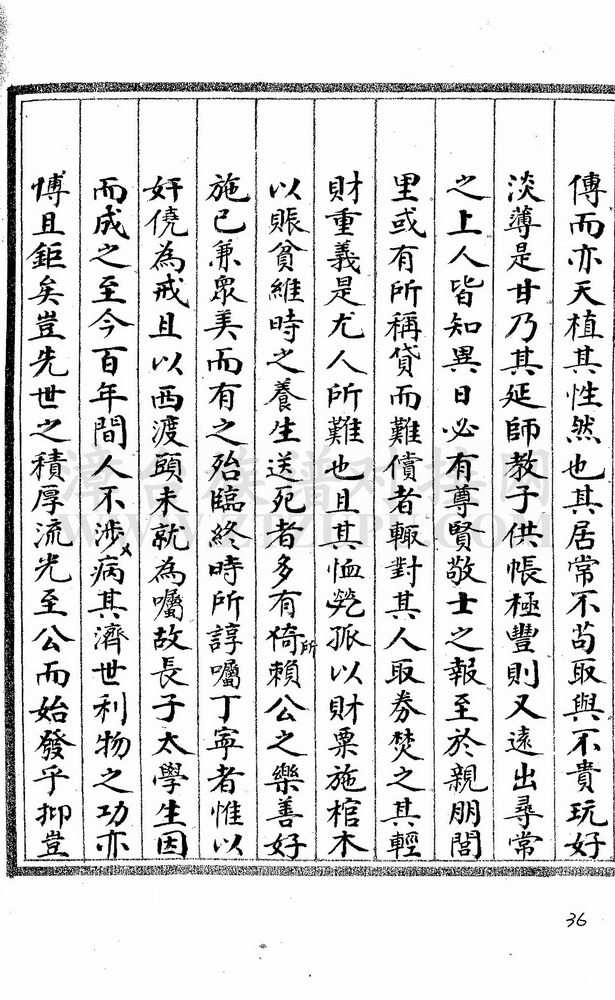 傳而亦天植其性然也其居常不苟取與不貴玩好
淡薄是甘乃其延師教子供帳極豐則又遠出尋常
之上人皆知異日必有尊賢敬士之報至於親朋閭
里或有所稱貸而難償者輙對其人取券焚之其輕
財重義是尤人所難也且其恤煢孤以財粟施棺木
以賬貧維時之養生送死者多有所倚賴公之樂善好
施已兼眾美而有之殆臨終時所諄囑丁寧者惟以
奸僥為戒且以西渡頭未就為囑故長子太學生因
而成之至今百年間人不涉病其濟世利物之功亦
博且鉅矣豈先世之積厚流光至公而始發乎抑豈
36
漳台族谱对接网
WWW.ZTZUPU.COM